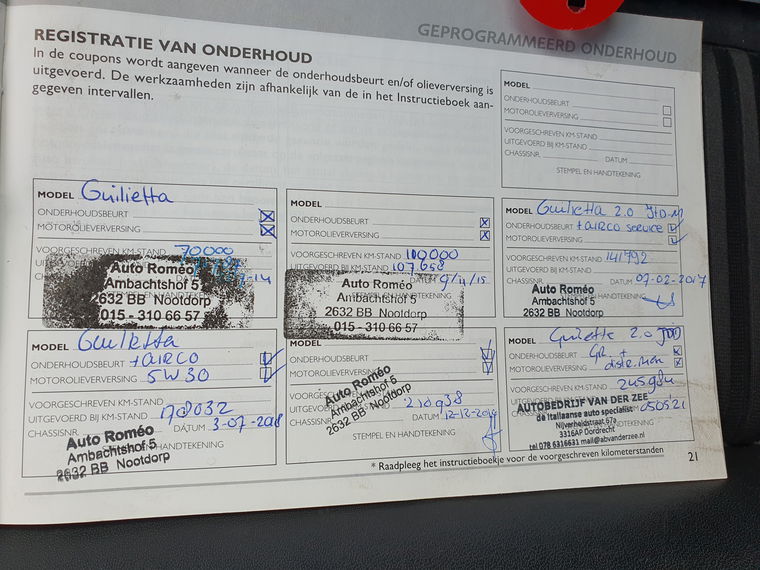 GEPROGRAMMEERD ONDERHOUD
REGISTRATIE VAN ONDERHOUD
In de coupons wordt aangeven wanneer de onderhoudsbeurt en/of olieverversing is
uitgevoerd. De werkzaamheden zijn afhankelijk van de in het Instructieboek aan-
gegeven intervallen.
MODEL
ONDERHOUDSBEURT
MOTOROLIEVERVERSING
VOORGESCHREVEN KM-STAND
UITGEVOERD BIJ KM-STAND
CHASSISNR. DATUM
STEMPEL EN HANDTEKENING
MODEL Guilietta
ONDERHOUDSBEURT
MOTOROLIEVERVERSING
VOORGESCHREVEN KM-STAND 70000
Auto Roméo
Ambachtshof 5
2632 BB Nootdorp
015 - 310 66 57
MODEL
ONDERHOUDSBEURT
MOTOROLIEVERVERSING
VOORGESCHREVEN KM-STAND 100000
UITGEVOERD BIJ KM-STAND 107.658
DATUM 9/11/15
Auto Roméo
Ambachtshof 5
2632 BB Nootdorp
015 - 310 66 57
MODEL Guilietta 2.0 JTD-M
ONDERHOUDSBEURT + airco service
MOTOROLIEVERVERSING
VOORGESCHREVEN KM-STAND 141792
UITGEVOERD BIJ KM-STAND
CHASSISNR. DATUM 07-02-2017
Auto Roméo
Ambachtshof 5
2632 BB Nootdorp
MODEL Guilietta
ONDERHOUDSBEURT + AIRCO
MOTOROLIEVERVERSING 5W30
VOORGESCHREVEN KM-STAND
UITGEVOERD BIJ KM-STAND 178032
CHASSISNR. DATUM 3-07-2018
Auto Roméo
Ambachtshof 5
2632 BB Nootdorp
MODEL
ONDERHOUDSBEURT
MOTOROLIEVERVERSING
VOORGESCHREVEN
210938
DATUM
Auto Roméo
Ambachtshof 5
2632 BB Nootdorp
STEMPEL EN HANDTEKENING
MODEL 2.0
ONDERHOUDSBEURT GR +
MOTOROLIEVERVERSING
VOORGESCHREVEN KM-STAND
UITGEVOERD BIJ KM-STAND
AUTOBEDRIJF VAN DER ZEE
de Italiaanse auto specialist
Nijverheidstraat 67a
3316AP Dordrecht
tel 078 6316631 mail@abvanderzee.nl
* Raadpleeg het instructieboekje voor de voorgeschreven kilometerstanden
21